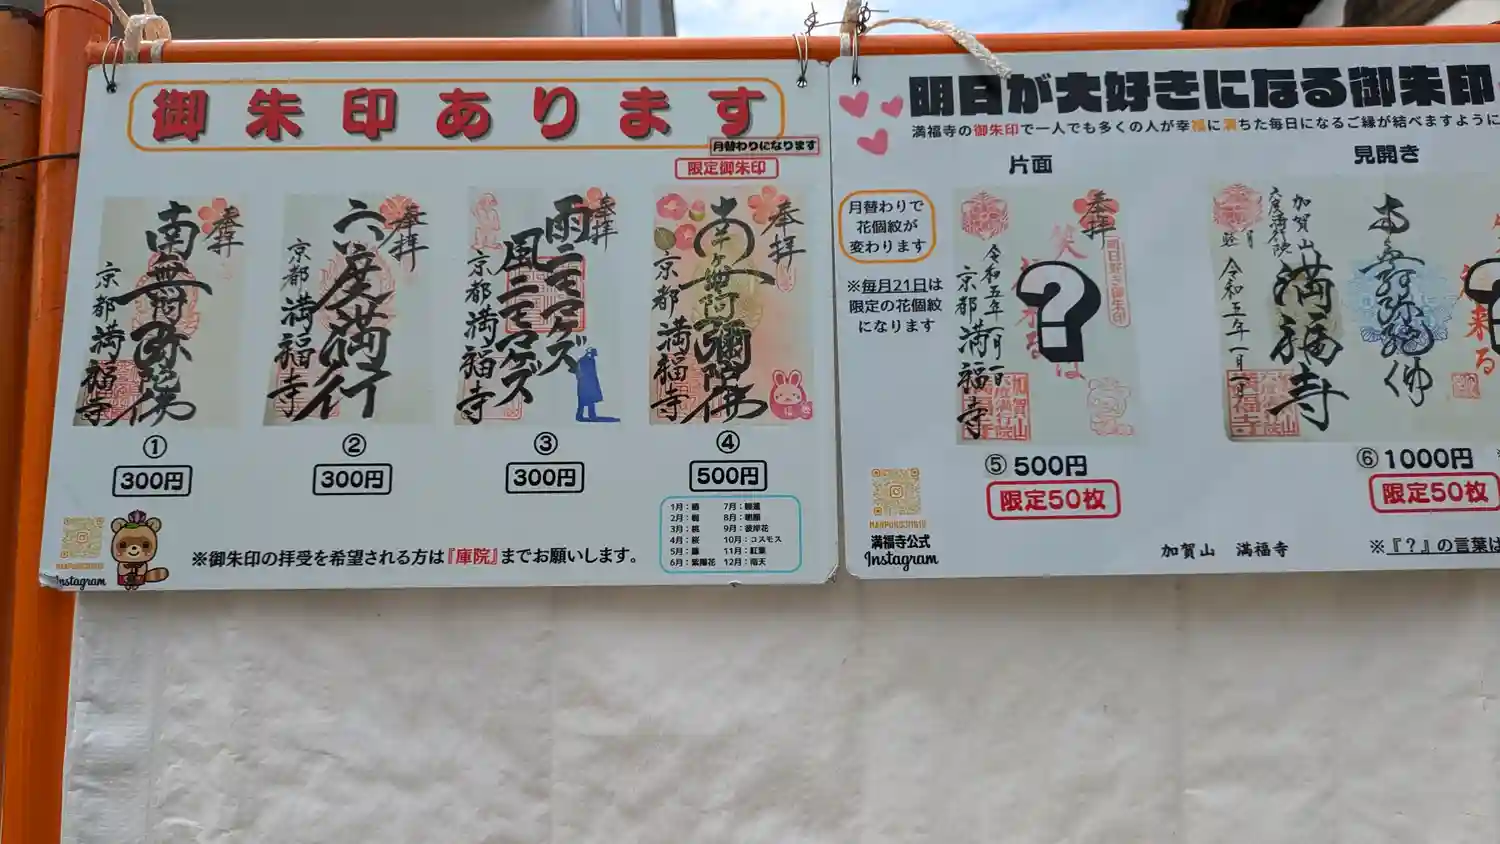 御朱印あります
月替わりになります
限定御朱印
奉拝
南無阿弥陀佛
京都 満福寺
①
300円
奉拝
六波羅満行
京都 満福寺
②
300円
奉拝
雨ニモマケズ
風ニモマケズ
京都 満福寺
③
300円
奉拝
南無阿彌陀佛
京都 満福寺
④
500円
1月：椿 7月：睡蓮
2月：梅 8月：朝顔
3月：桃 9月：彼岸花
4月：桜 10月：コスモス
5月：藤 11月：紅葉
6月：紫陽花 12月：南天
Instagram
※御朱印の拝受を希望される方は『庫院』までお願いします。
明日が大好きになる御朱印
満福寺の御朱印で一人でも多くの人が幸福に満ちた毎日になるご縁が結べますように
片面
見開き
月替わりで
花個紋が
変わります
※毎月21日は
限定の花個紋
になります
奉拝
明日好き御朱印
令和五年一月一日
京都 満福寺
?
⑤ 500円
限定50枚
加賀山
満福寺
令和五年一月一日
⑥ 1000円
限定50枚
満福寺公式
Instagram
加賀山 満福寺
※『？』の言葉は